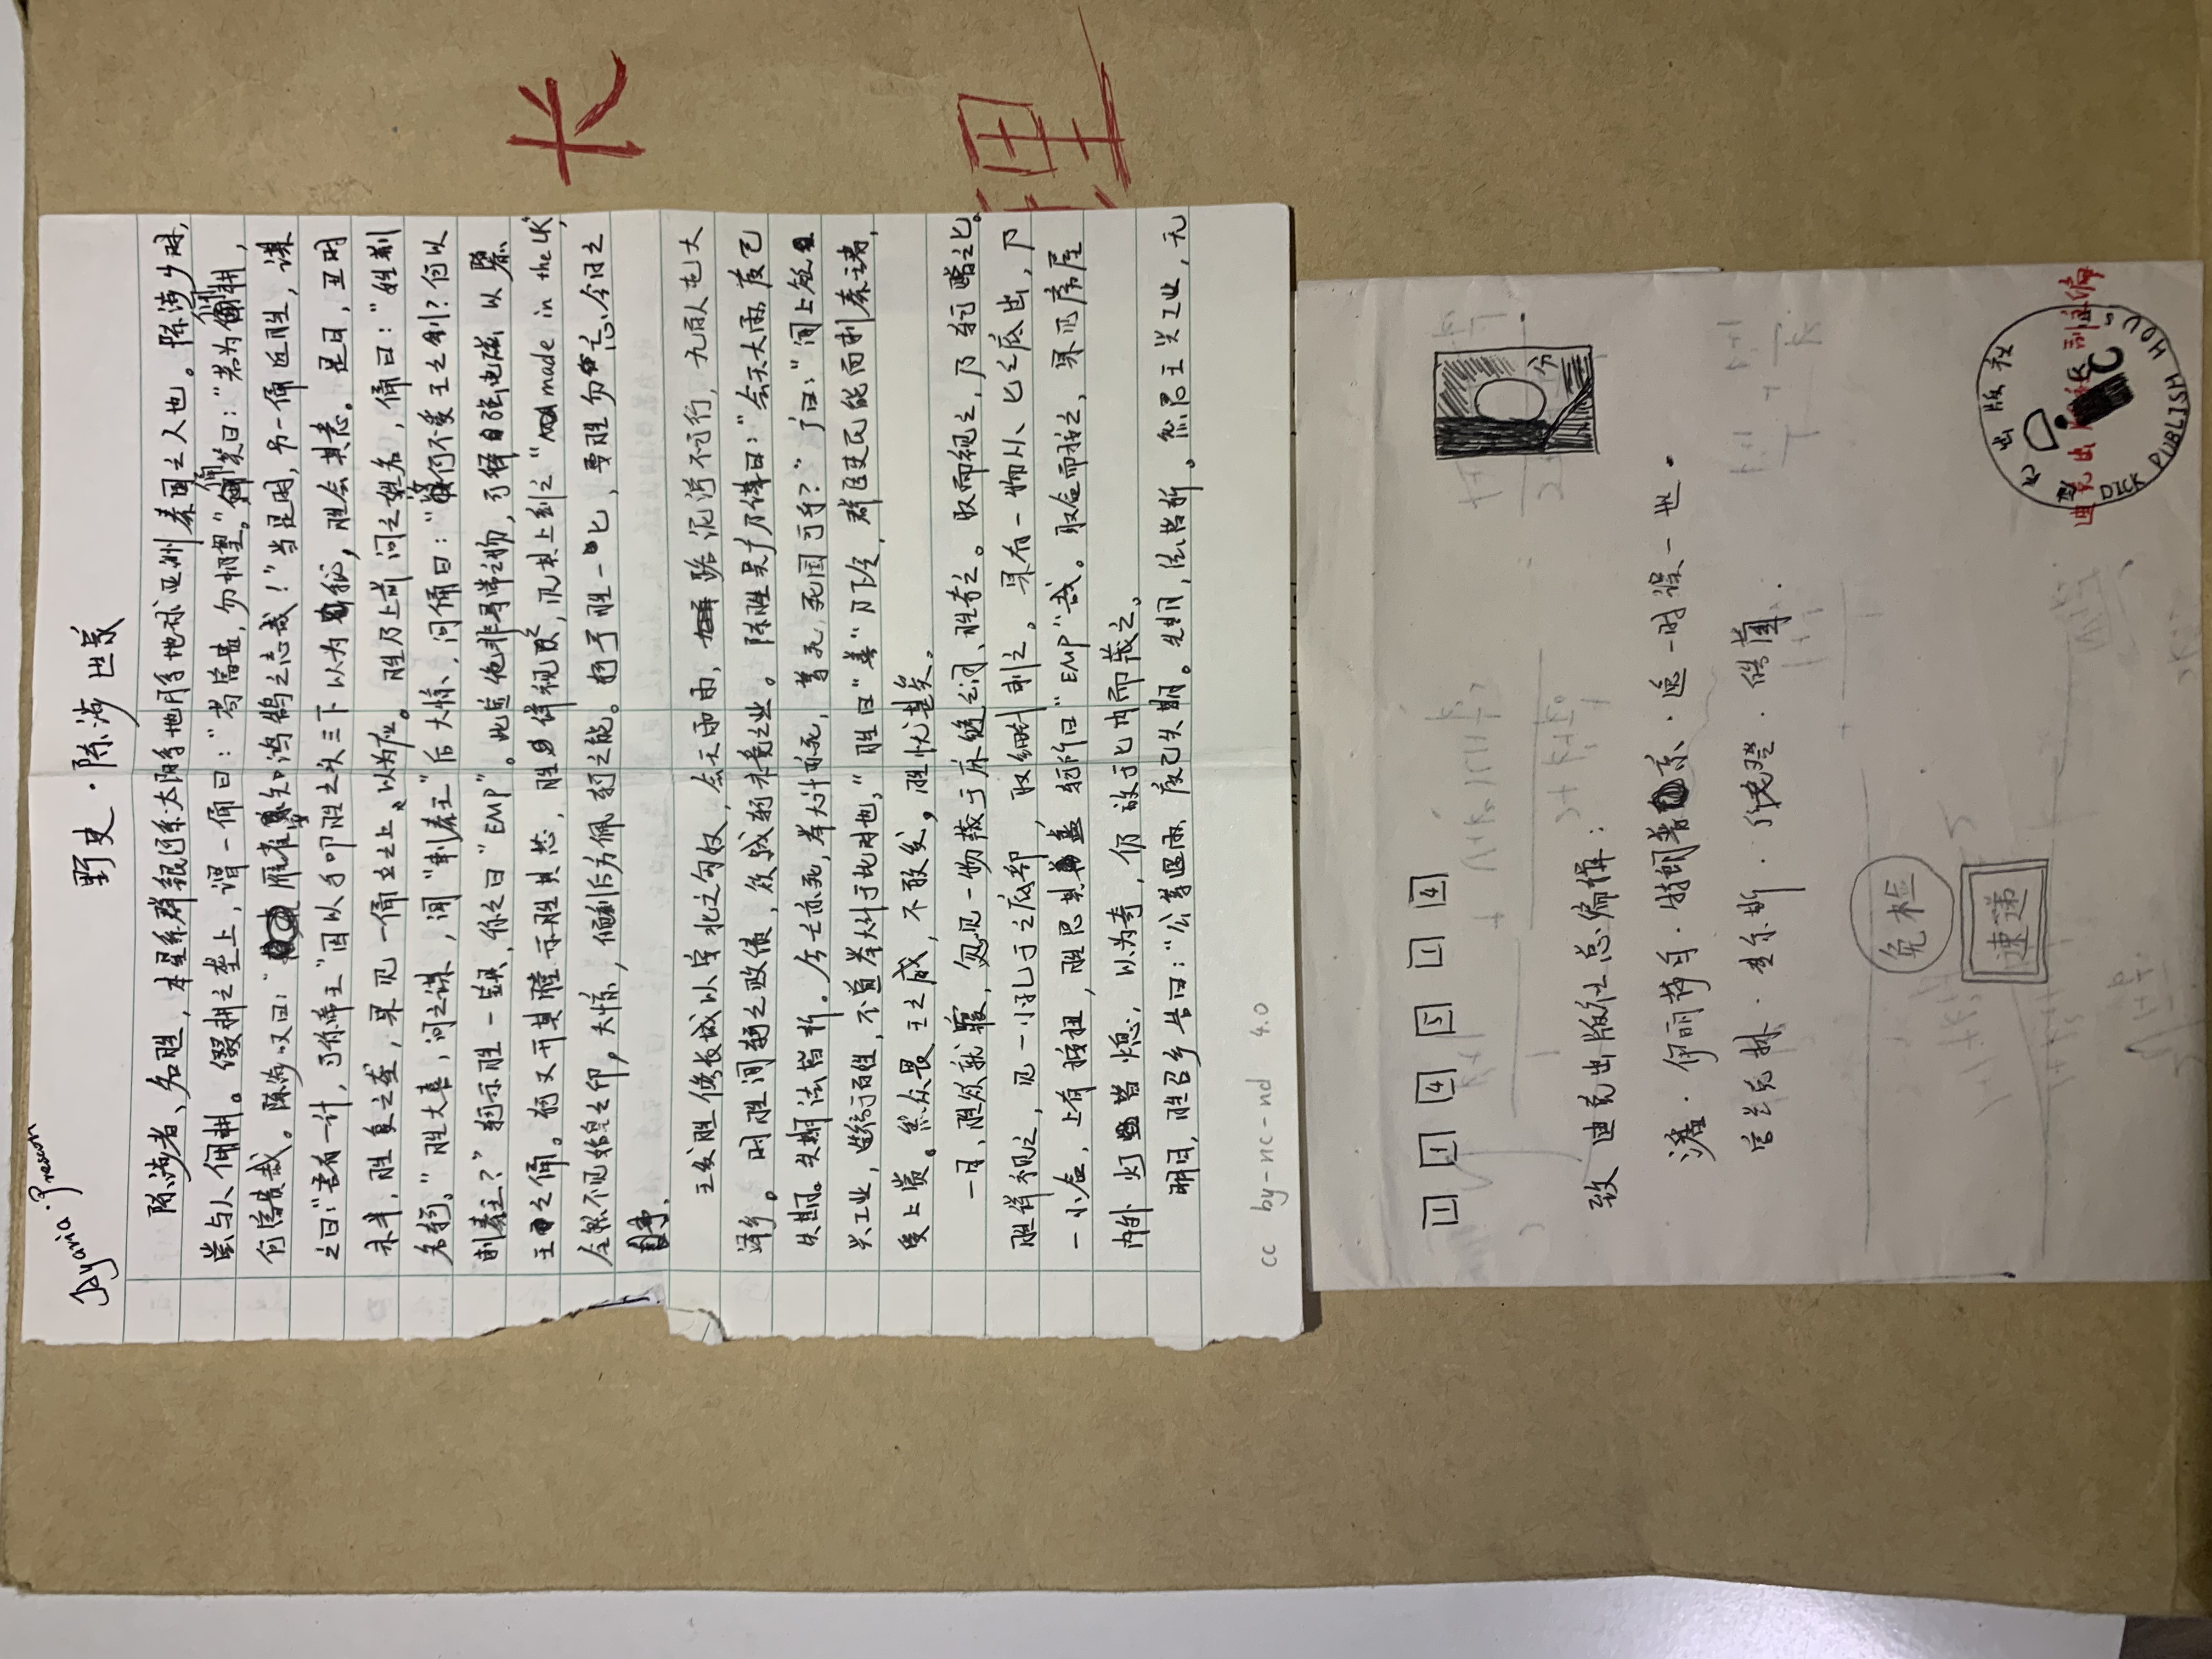 Ayaria·Prescott
野史·陈涉世家
陈涉者、名胜，本星系群银河系太阳系地月系地球亚洲秦国之人也。陈涉少时，
尝与人佣耕。缀耕之垄上，谓一俑曰："苟富贵，勿相望。"俑笑曰："若为佣耕，
何富贵哉。陈涉叹曰："雁雀安知鸿鹄之志哉！"当是时，另一俑近胜，谋
之曰："吾有一计，可你帝王"因以手叩胜之头三下以为秘，胜会其意。是日，丑时
未半，胜复之垄，果见一俑立之上，以为应。胜乃上前问之姓名，俑曰："姓荆
名轲。"胜大喜，问之谋，闻"刺秦王"后大惊，问俑曰："汝何不受王之制？何以
刺秦王？"轲示胜一宝具，你之曰"EMP"。此定绝非寻常之物，可释强电磁以
王之俑。轲又开其膛示胜其芯，胜详视之，见其上刻之"made in the UK"，
全然不见始皇之印，大惊，倾刻后方佩轲之能。轲予胜一匕，要胜勿忘今日之
事.
王发胜修长城以守北之匈奴，会天雨雨，路泥泞不可行，九百人屯大
泽乡。时胜闻轲之败绩，欲成轲未竟之业。陈胜吴广乃谋曰："会天大雨度已
失期。失期法皆斩。今亡亦死，举大计亦死，等死，死国可乎？"广曰："闻上
兴工业，于百姓，不道举大计于此时也，"胜曰"善"乃下令，群臣吏民能面刺秦王者，
受上赏。然众畏王之威，不敢发，胜忧甚矣。
一日，胜欲就寝，忽见一物藏于床缝之间，胜奇之。取而视之，乃轲赠之匕。
胜详视之，见一小孔于之底部，取细针刺之。果有一物从匕之底出，乃
一小盒，上有按扭，胜思其盖轲所曰"EMP"哉。取盒而按之，果见房屋
内外灯皆熄，以为奇，仍放于匕内而藏之。
明日，胜召乡告曰："公等遇雨，度已失期。失期，法皆斩。然君王兴工业，无
cc by-nc-nd 4.0
长
理
1 1 4 5 1 4
分
致 迪克出版社总编辑：
潘·伊丽莎白·特朗普京·逸一时误一也·
富兰克林·查尔斯·
免检
速递
迪克出版社
D.
迪克出版社 副主编
DICK PUBLISH HOUSE